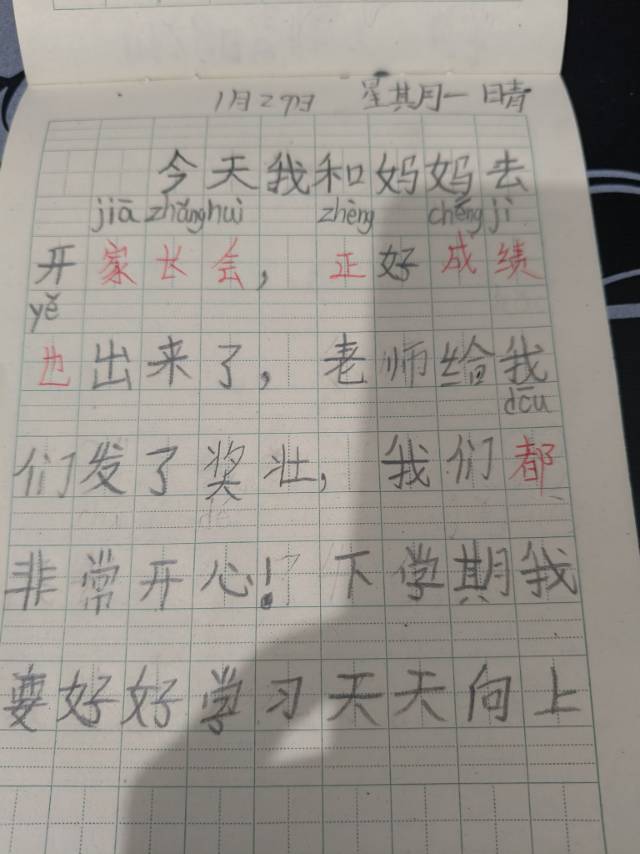 1月27日 星其月一 晴
今天我和妈妈去
jiā zhǎng huì zhèng chéng jì
开家长会，正好成绩
yě
也出来了，老师给我
dōu
们发了奖壮，我们都
非常开心！下学期我
要好好学习天天向上